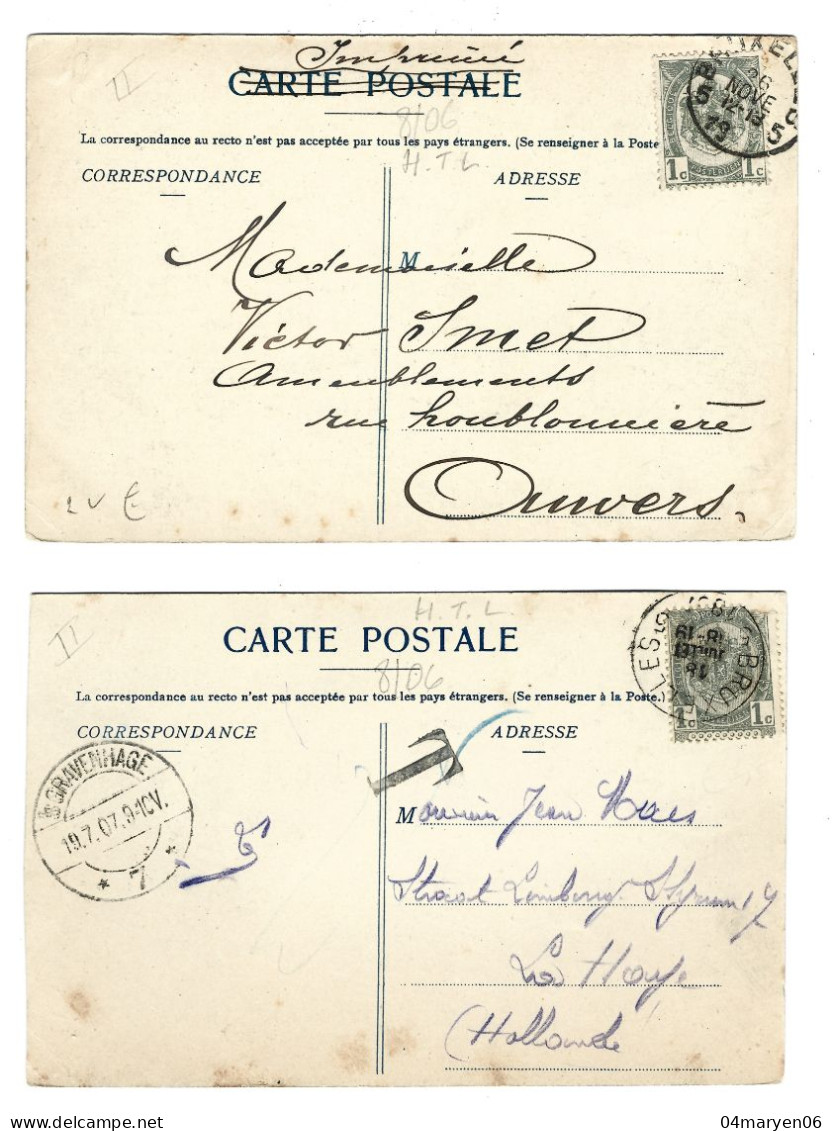 Imprimé
CARTE POSTALE
II
8/06
La correspondance au recto n'est pas acceptée par tous les pays étrangers. (Se renseigner à la Poste
H.T.L.
CORRESPONDANCE
ADRESSE
BRUXELLES 5
26
NOVE
12-13
19
5
1c 1c
M
Mademoiselle
Victor Smet
Ameublements
rue houblonnière
Anvers.
H.T.L.
II
CARTE POSTALE
8/06
La correspondance au recto n'est pas acceptée par tous les pays étrangers. (Se renseigner à la Poste.)
CORRESPONDANCE
ADRESSE
18
JUILLET
18-19
1c 1c
T
'S GRAVENHAGE
19.7.07.9-10V.
* 7 *
Monsieur Jean Maes
Straat Limburg Styrum 17
La Haye
(Hollande
04maryen06